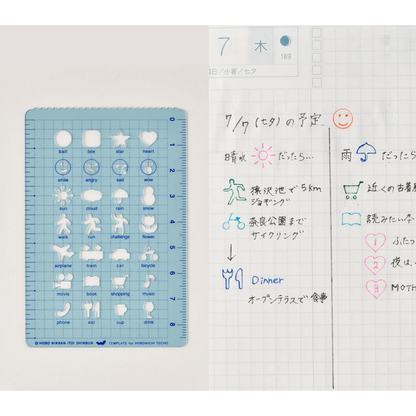 0
ball box star heart
1
smile angry sad wow
2
sun cloud rain snow
3
walk run challenge flower
4
airplane train car bicycle
5
movie book shopping music
6
phone eat cup drink
7
8
© HOBO NIKKAN ITOI SHINBUN TEMPLATE for HOBONICHI TECHO
7 木
169
日/小暑/七夕
7/7 (七夕) の予定
晴れ だったら…
池で 5km
ジョギング
奈良公園まで
サイクリング
Dinner
オープンテラスで 食事
雨 だったら
近くの古着
読みたい本
1 ふたつ
2 夜は、
3 MOTH